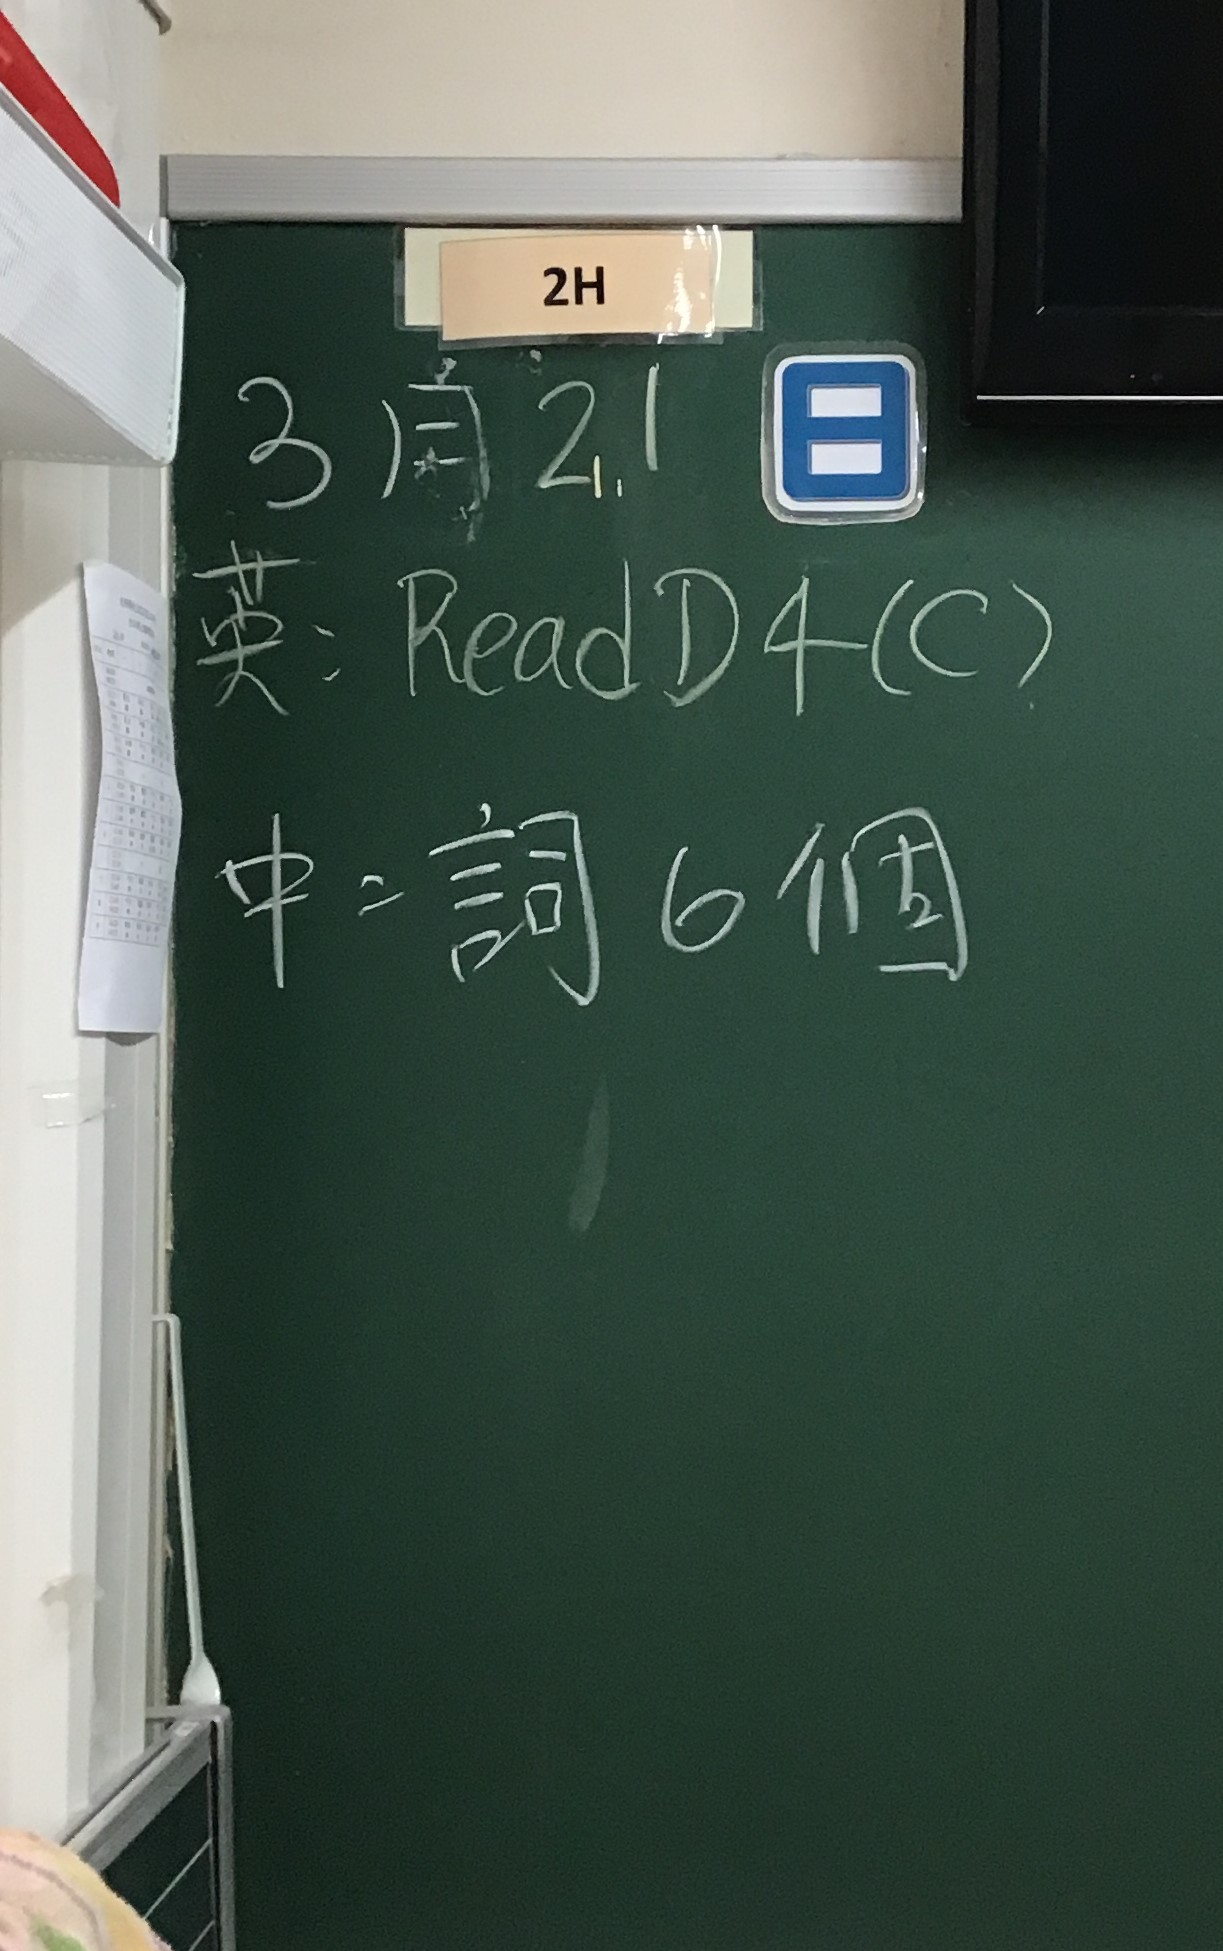 2H
3月21日
英：Read D4(C)
中：詞6個